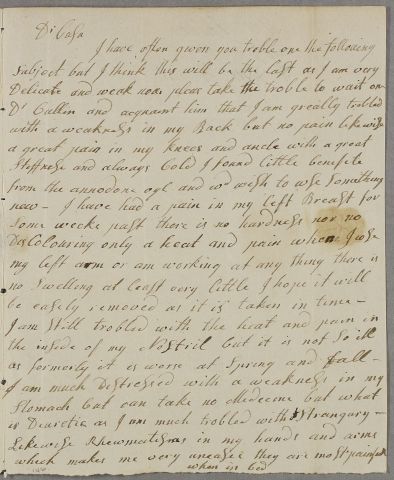 Dr Cosn
I have often given you troble one the following
Subject but I think this will be the last as I am very
Delicate and weak now pleas take the troble to wait on
Dr Cullin and acquant him that I am greatly trobled
with a weakness in my Back but no pain Likewise
a great pain in my knees and ancle with a great
Stiffness and always Cold I found little benefite
from the annodone oyl and wd wish to wse Somathing
naw - I have had a pain in my left Breast for
Some weeks past there is no hardness nor no
Discolouring only a heat and pain when I wse
my left arm or am working at any thing there is
no Swelling at least very little I hope it will
be easely removed as it is taken in time -
I am Still trobled with the heat and pain in
the inside of my Nostril but it is not So ill
as formerly it is worse at Spring and fall -
I am much Distressed with a weakness in my
Stomach but can take no Medecine but what
is Diuretic as I am much trobled with Strangury -
Likewise Rhewmatisms in my hands and arms
which makes me very uneasie they are most painfull
when in bed